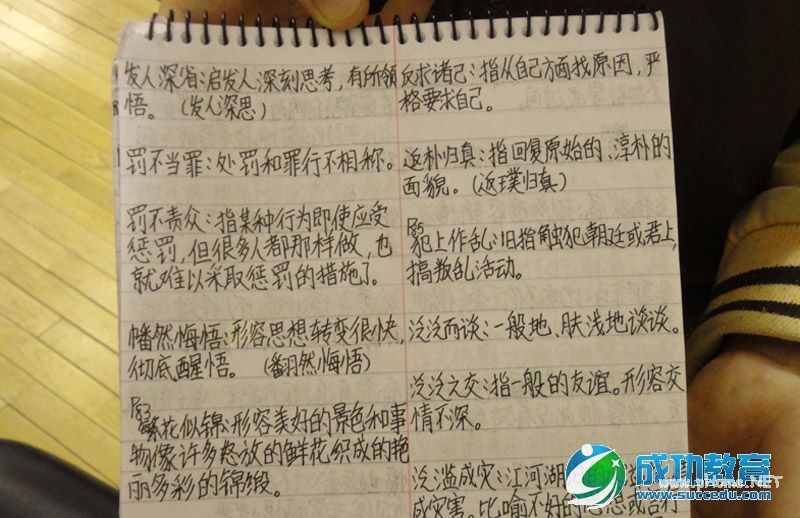 发人深省:启发人深刻思考,有所领
悟。(发人深思)
罚不当罪:处罚和罪行不相称。
罚不责众:指某种行为即使应受
惩罚,但很多人都那样做,也
就难以采取惩罚的措施了。
幡然悔悟:形容思想转变很快,
彻底醒悟。(翻然悔悟)
P83
繁花似锦:形容美好的景色和事
物像许多怒放的鲜花织成的艳
丽多彩的锦缎。
反求诸己:指从自己方面找原因,严
格要求自己。
返朴归真:指回复原始的、淳朴的
面貌。(返璞归真)
犯上作乱:旧指触犯朝廷或君上,
搞叛乱活动。
泛泛而谈:一般地、肤浅地谈谈。
泛泛之交:指一般的友谊。形容交
情不深。
泛滥成灾:江河湖
成灾害。比喻不好的
成功教育
www.succedu.com